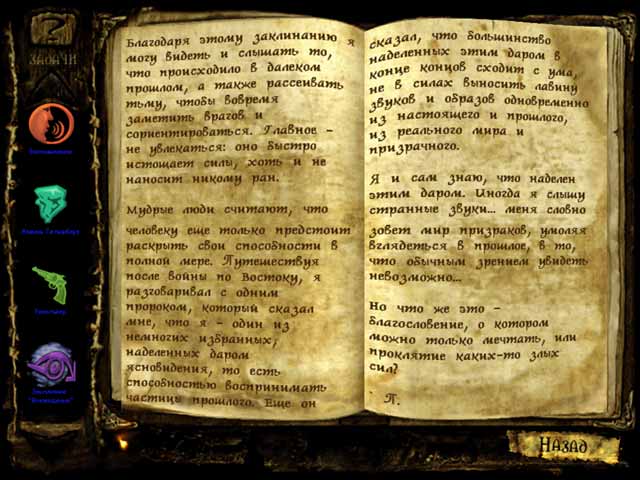 ЗАДАЧИ
Благодаря этому заклинанию я
могу видеть и слышать то,
что происходило в далеком
прошлом, а также рассеивать
тьму, чтобы вовремя
заметить врагов и
сориентироваться. Главное -
не увлекаться: оно быстро
истощает силы, хоть и не
наносит никому ран.
Мудрые люди считают, что
человеку еще только предстоит
раскрыть свои способности в
полной мере. Путешествуя
после войны по Востоку, я
разговаривал с одним
пророком, который сказал
мне, что я - один из
немногих избранных,
наделенных даром
ясновидения, то есть
способностью воспринимать
частицы прошлого. Еще он
сказал, что большинство
наделенных этим даром в
конце концов сходит с ума,
не в силах выносить лавину
звуков и образов одновременно
из настоящего и прошлого,
из реального мира и
призрачного.
Я и сам знаю, что наделен
этим даром. Иногда я слышу
странные звуки... меня словно
зовет мир призраков, умоляя
вглядеться в прошлое, в то,
что обычным зрением увидеть
невозможно...
Но что же это -
благословение, о котором
можно только мечтать, или
проклятие каких-то злых
сил?
П.
Назад